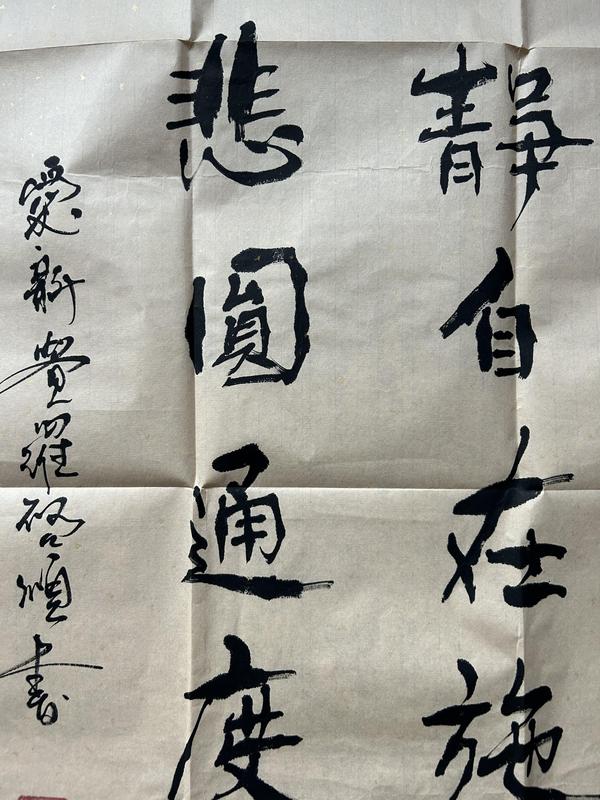 靜自在施
悲圓通度
愛新覺羅書